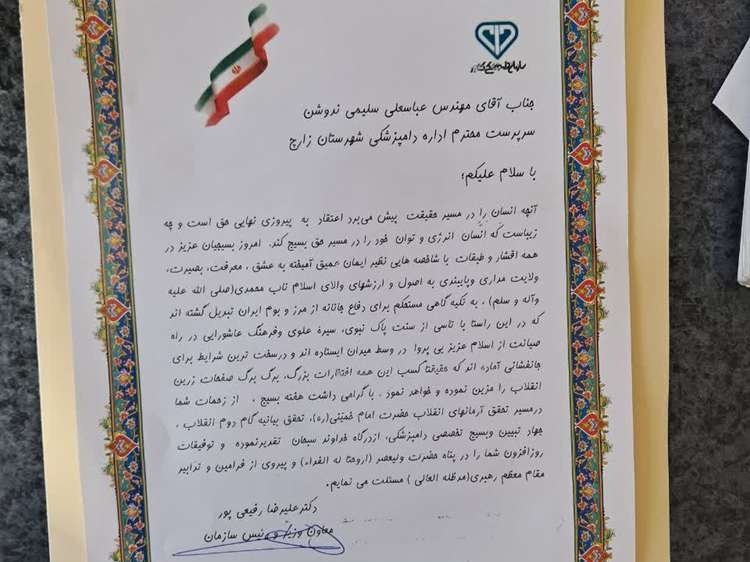 جناب آقای مهندس عباسعلی سلیمی ندوشن
سرپرست محترم اداره دامپزشکی شهرستان زارچ
با سلام علیکم؛
آنچه انسان را در مسیر حقیقت پیش می‌برد اعتقاد به پیروزی نهایی حق است و چه
زیباست که انسان انرژی و توان خود را در مسیر حق بسیج کند. امروز بسیجیان عزیز در
همه اقشار و طبقات با شاخصه هایی نظیر ایمان عمیق آمیخته به عشق ، معرفت، بصیرت،
ولایت مداری وپایبندی به اصول و ارزشهای والای اسلام ناب محمدی(صلی الله علیه
وآله و سلم) ، به تکیه گاهی مستحکم برای دفاع جانانه از مرز و بوم ایران تبدیل گشته اند
که در این راستا با تاسی از سنت پاک نبوی، سیرهٔ علوی وفرهنگ عاشورایی در راه
صیانت از اسلام عزیز بی پروا در وسط میدان ایستاده اند و درسخت ترین شرایط برای
جانفشانی آماده اند که حقیقتا کسب این همه افتخارات بزرگ، برگ برگ صفحات زرین
انقلاب را مزین نموده و خواهد نمود . با گرامی داشت هفته بسیج ، از زحمات شما
درمسیر تحقق آرمانهای انقلاب حضرت امام خمینی(ره)، تحقق بیانیه گام دوم انقلاب ،
جهاد تبیین وبسیج تخصصی دامپزشکی، ازدرگاه خداوند سبحان تقدیرنموده و توفیقات
روزافزون شما را در پناه حضرت ولیعصر (ارواحنا له الفداء) و پیروی از فرامین و تدابیر
مقام معظم رهبری(مدظله العالی ) مسئلت می نمایم.
دکتر علیرضا رفیعی پور
معاون وزیر و رئیس سازمان